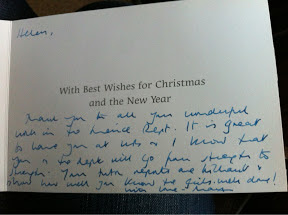 Helen,
With Best Wishes for Christmas
and the New Year
Thank you to all your wonderful
work in the Dept. It is great
to have you at and I know that
you & the dept will go from strength to
strength. Your tutor reports are brilliant &
show how well you know the girls. Well done!
with love